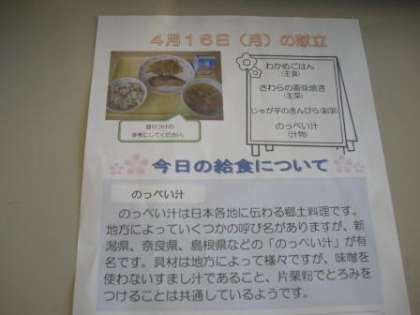 4月16日(月)の献立
わかめごはん
(主食)
さわらの香味焼き
(主菜)
じゃが芋のきんぴら(副菜)
のっぺい汁
(汁物)
盛りつけの
参考にしてください。
今日の給食について
のっぺい汁
のっぺい汁は日本各地に伝わる郷土料理です。
地方によっていくつかの呼び名がありますが、新
潟県、奈良県、島根県などの「のっぺい汁」が有
名です。具材は地方によって様々ですが、味噌を
使わないすまし汁であること、片栗粉でとろみを
つけることは共通しているようです。